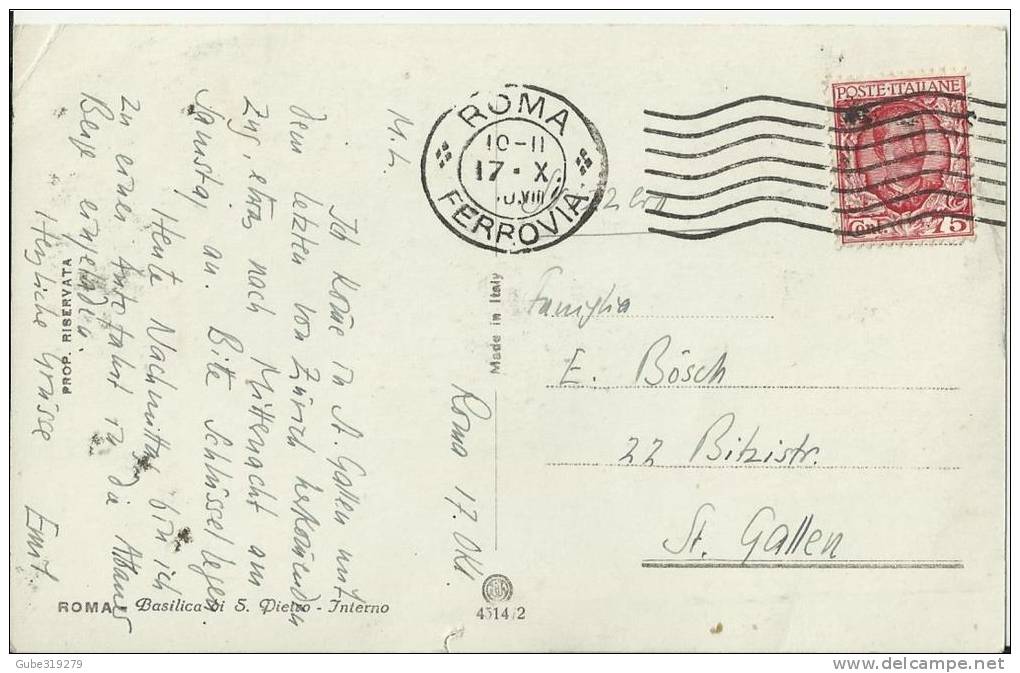 ROMA
10-11
17 · X
FERROVIA
POSTE·ITALIANE
Cent. 75
M. L.
Ich kom̄e in St. Gallen mit
dem letzten von Zürich herkom̄enden
Zug, etwas nach Mitternacht am
Samstag an. Bitte Schlüssel legen
Heute Nachmittag bin ich
zu einer Autofahrt in die
Berge eingeladen.
Herzliche Grüsse
Emil
Roma 17. Okt.
Famiglia
E. Bösch
22 Bitzistr.
St. Gallen
Made in Italy
PROP. RISERVATA
ROMA - Basilica di S. Pietro - Interno
4514/2
Gube319279
delcampe.net